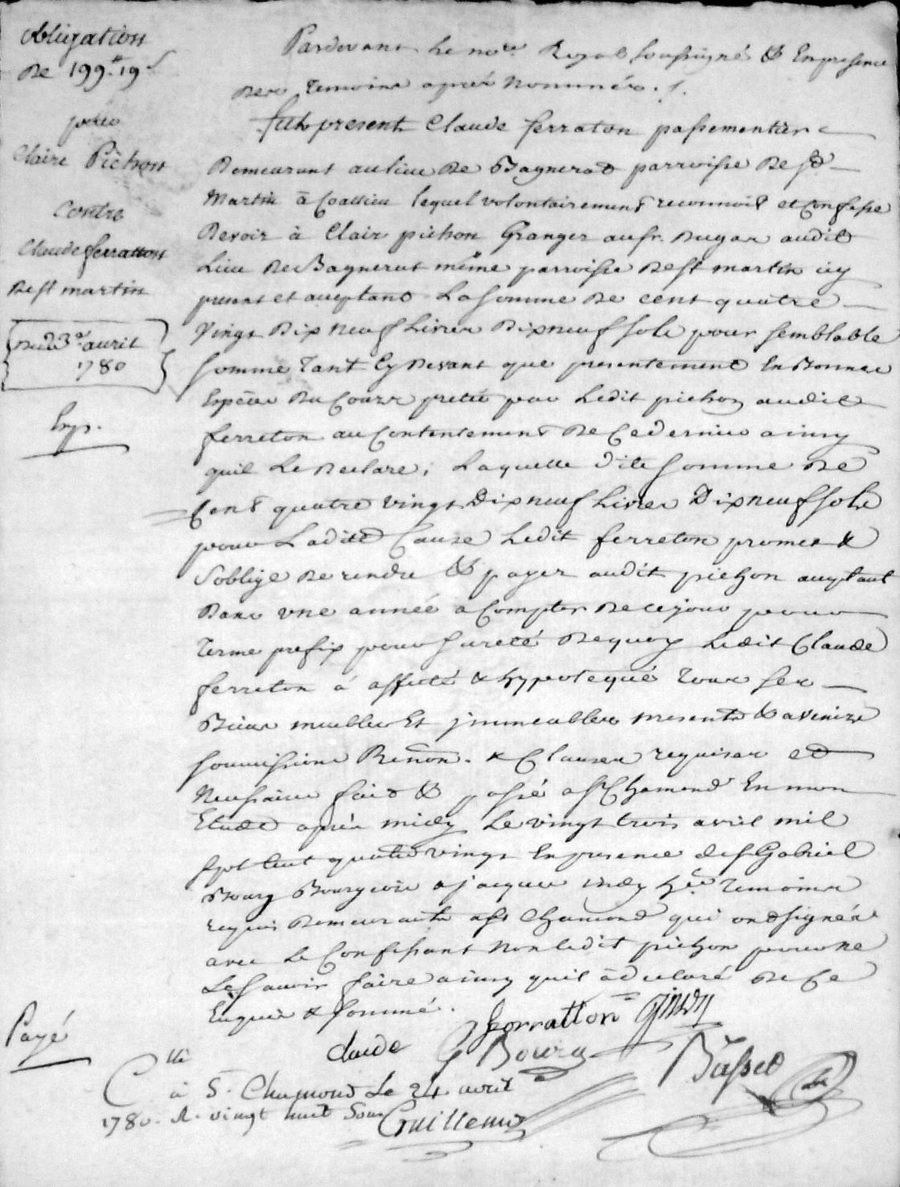 obligation
De 199# 19s
pour
Claire Pichon
Contre
Claude ferratton
De st martin
Du 23e avril
1780
Exp.
Pardevant Le nore Royal Soussigné & En presence
Des Temoins après nommés.
fut present Claude ferraton passementier
Demeurant au lieu De Bagnerat parroisse De st
Martin à Coallieu lequel volontairement reconnoit et Confesse
Devoir à Clair pichon Granger au sr. Dugas audit
Lieu De Bagnerut même parroisse De st martin icy
present et acceptant La somme De Cent quatre
vingt Dix neuf Livres Dix neuf sols pour semblable
somme Tant Cy Devant que presentement En Bonnes
Espèces Du Cours pretée par Ledit pichon audit
ferreton au Contentement De Ce dernier ainsy
quil Le Declare; Laquelle dite somme De
Cent quatre vingt Dix neuf Livres Dix neuf sols
pour Ladite Cause Ledit ferreton promet &
s'oblige De rendre & payer audit pichon acceptant
Dans une année à Compter De Ce jour pour
Terme prefix pour sureté De quoy Ledit Claude
ferreton à affecté & hypotequé Tous ses
Biens meubles Et jmmeubles presents & avenirs
soumissions Renon. & Clauses requises et
Necessaires fait & passé a st Chamond En mon
Etude après midy Le vingt trois avril mil
sept Cent quatre vingt En presence de sr Gabriel
Bourg Bourgeois & jacques Temoins
requis Demeurants a st Chamond qui ont signé
avec Le Confessant Non Ledit pichon pour ne
Le savoir faire ainsy quil à declaré De Ce
Enquis & sommé.
Payé
Claude fforratton
G Bourg Basset
Clle
à St. Chamond Le 24 avril
1780. R. vingt huit sous
Guillemo